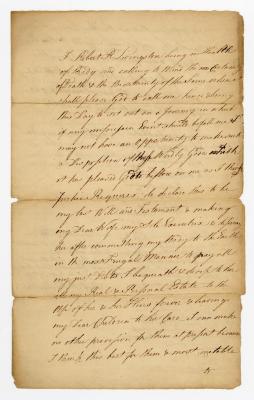 I Robert R Livingston being in the
of Body and calling to Mind the
of Death & the Uncertainty of the Time when it
shall please God to call me hence having
this Day to set out on a Journey in which
if any unforeseen Event should befall me I
may not have an Opportunity to make such
a Disposition of those Worldly Goods
it has pleased God to bestow on me as
Justice Requires do declare this to be
my last Will and Testament & making
my Dear Wife my Executrix desire
her after committing my Body to the Earth
in the most Frugal Manner to pay all
my just Debts I bequeath & devise to her
all my Real & Personal Estate to the
use of her & her Heirs forever & leaving
my Dear Children to her Care I can make
no other provision for them at present because
I think this best for them & most